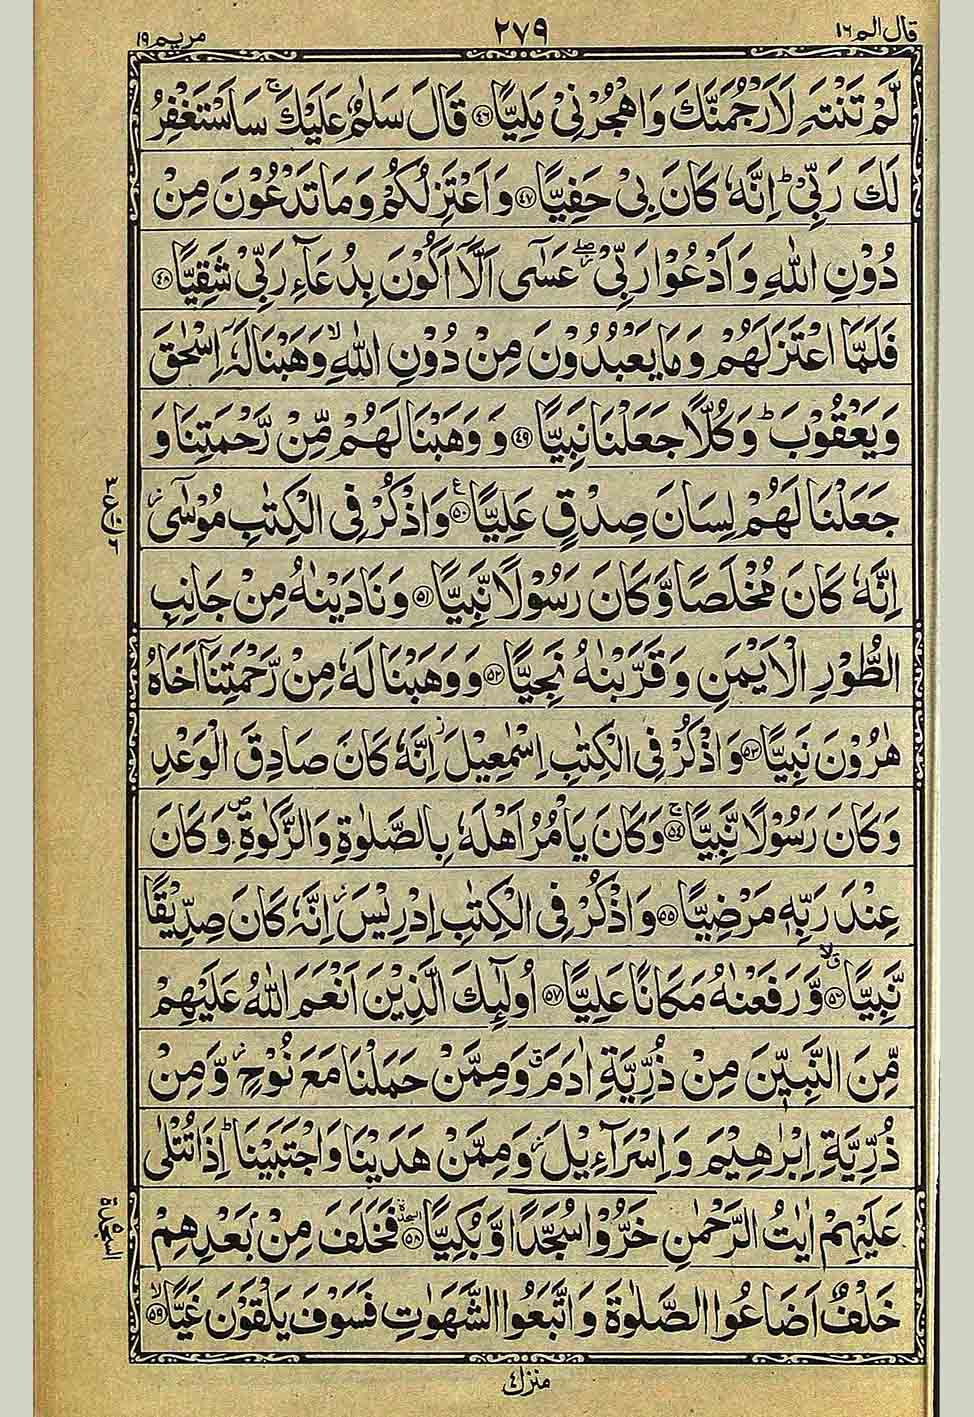 قال الم ١٦ ٢٧٩ مريم ١٩
لَّمْ تَنْتَهِ لَاَرْجُمَنَّكَ وَاهْجُرْنِيْ مَلِيًّا ﴿٤٦﴾ قَالَ سَلٰمٌ عَلَيْكَ ۚ سَاَسْتَغْفِرُ
لَكَ رَبِّيْ ؕ اِنَّهٗ كَانَ بِيْ حَفِيًّا ﴿٤٧﴾ وَاَعْتَزِلُكُمْ وَمَا تَدْعُوْنَ مِنْ
دُوْنِ اللّٰهِ وَاَدْعُوْا رَبِّيْ ۖ عَسٰٓى اَلَّآ اَكُوْنَ بِدُعَآءِ رَبِّيْ شَقِيًّا ﴿٤٨﴾
فَلَمَّا اعْتَزَلَهُمْ وَمَا يَعْبُدُوْنَ مِنْ دُوْنِ اللّٰهِ ۙ وَهَبْنَا لَهٗٓ اِسْحٰقَ
وَيَعْقُوْبَ ؕ وَكُلًّا جَعَلْنَا نَبِيًّا ﴿٤٩﴾ وَوَهَبْنَا لَهُمْ مِّنْ رَّحْمَتِنَا وَ
جَعَلْنَا لَهُمْ لِسَانَ صِدْقٍ عَلِيًّا ﴿٥٠﴾ ع وَاذْكُرْ فِي الْكِتٰبِ مُوْسٰٓى ز
اِنَّهٗ كَانَ مُخْلَصًا وَّكَانَ رَسُوْلًا نَّبِيًّا ﴿٥١﴾ وَنَادَيْنٰهُ مِنْ جَانِبِ
الطُّوْرِ الْاَيْمَنِ وَقَرَّبْنٰهُ نَجِيًّا ﴿٥٢﴾ وَوَهَبْنَا لَهٗ مِنْ رَّحْمَتِنَآ اَخَاهُ
هٰرُوْنَ نَبِيًّا ﴿٥٣﴾ وَاذْكُرْ فِي الْكِتٰبِ اِسْمٰعِيْلَ ز اِنَّهٗ كَانَ صَادِقَ الْوَعْدِ
وَكَانَ رَسُوْلًا نَّبِيًّا ﴿٥٤﴾ ۚ وَكَانَ يَاْمُرُ اَهْلَهٗ بِالصَّلٰوةِ وَالزَّكٰوةِ ص وَكَانَ
عِنْدَ رَبِّهٖ مَرْضِيًّا ﴿٥٥﴾ وَاذْكُرْ فِي الْكِتٰبِ اِدْرِيْسَ ز اِنَّهٗ كَانَ صِدِّيْقًا
نَّبِيًّا ﴿٥٦﴾ ق ۙ وَّرَفَعْنٰهُ مَكَانًا عَلِيًّا ﴿٥٧﴾ اُولٰٓئِكَ الَّذِيْنَ اَنْعَمَ اللّٰهُ عَلَيْهِمْ
مِّنَ النَّبِيّٖنَ مِنْ ذُرِّيَّةِ اٰدَمَ ق وَمِمَّنْ حَمَلْنَا مَعَ نُوْحٍ ز وَّمِنْ
ذُرِّيَّةِ اِبْرٰهِيْمَ وَاِسْرَآءِيْلَ ز وَمِمَّنْ هَدَيْنَا وَاجْتَبَيْنَا ؕ اِذَا تُتْلٰى
عَلَيْهِمْ اٰيٰتُ الرَّحْمٰنِ خَرُّوْا سُجَّدًا وَّبُكِيًّا ﴿٥٨﴾ السجدة فَخَلَفَ مِنْ بَعْدِهِمْ
خَلْفٌ اَضَاعُوا الصَّلٰوةَ وَاتَّبَعُوا الشَّهَوٰتِ فَسَوْفَ يَلْقَوْنَ غَيًّا ﴿٥٩﴾ ۙ
٣
ع ١٠
٦
السجدة
منزل ٤